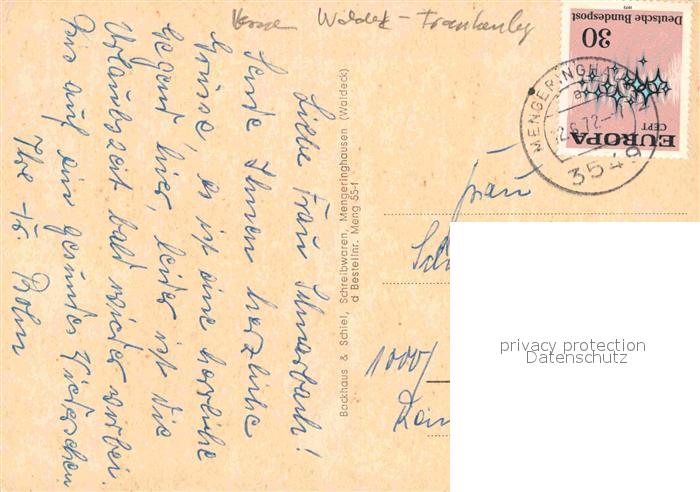 Waldeck - Frankenbg
Liebe Frau Schwerbach!
Sende Ihnen herzliche
Grüsse, es ist eine herrliche
Gegend hier, leider ist die
Urlaubszeit bald wieder vorbei.
Bis auf ein gesundes Wiedersehen
Ihre Fr. Bohn
Backhaus & Schiel, Schreibwaren, Mengeringhausen (Waldeck)
d Bestellnr. Meng 55-1
1972
Deutsche Bundespost
30
CEPT
EUROPA
MENGERINGHA
2.6.72.-
3549
Frau
1000/
privacy protection
Datenschutz